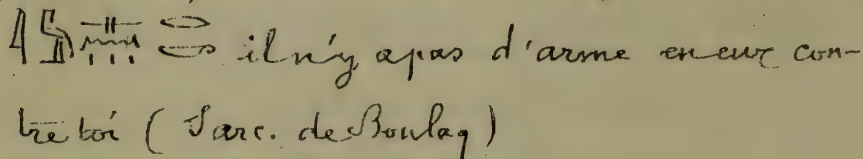 il n'y a pas d'arme en eux con-
tre toi (Sarc. de Boulaq)